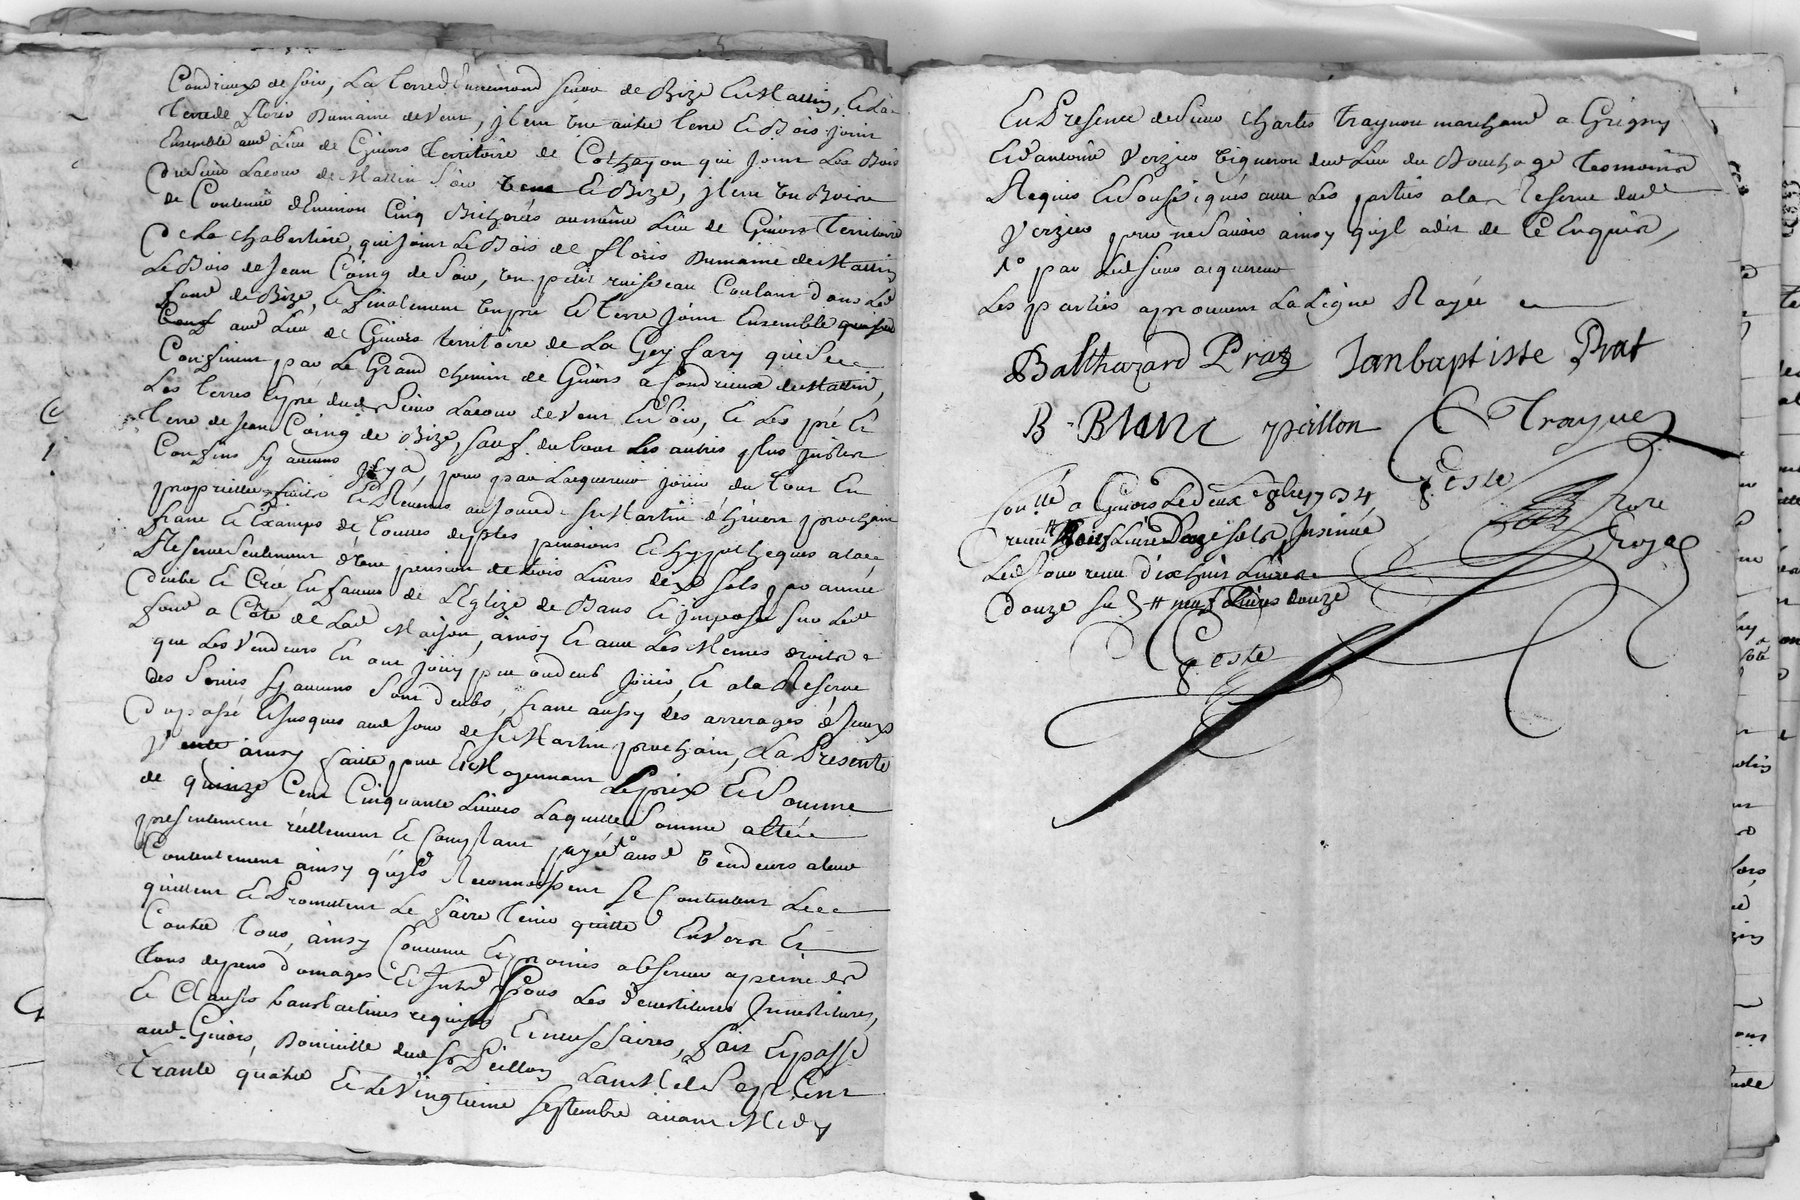 Condrieux de soir, La terre d' Sieur de Bize et Matin, et La
Terre de floris Dumaine de Vent, Item une autre terre et Bois joint
Ensemble aud Lieu de Givors Territoire de Cotzayon qui joint Les Bois
Dud Sieur Lacour de Mattin Soir et Bize, Item un Boire
de Contenüe d'Environ Cinq Bicherées au même Lieu de Givors Territoire
De La Chabertiere, qui joint Le Bois de floris Dumaine de Matin
Le Bois de Jean Coing de Soir, un petit ruisseau Coulant dans Led
fond de Bize, Et finalement un pré Et Terre joint Ensemble
aud Lieu de Givors territoire de La Gey fary qui Se
Confinent par Le Grand chemin de Givors a Condrieux de Matin,
Les terres Et pré dud Sieur Lacour de Vent Et Soir, Et Les pré Et
Terre de Jean Coing de Bize, sauf du tout Les autres plus justes
Confins Sy aucuns Il y a, pour par Lacquereur jouir du tout En
proprietté fruits Et Revenus au jour de St Martin d'hiver prochain
franc Et Exampt de toutes dettes pensions Et hyppotheques a la
Reserve Seulement d'une pension de trois Livres dix sols par année
düe Et Créé En faveur de L'Eglize de Bans Et Imposée sur Led
fond a Côté de Lad Maison, ainsy Et avec Les Mêmes droits
que Les Vendeurs En ont joüy pu ou deub joüir, Et a la Reserve
des Servis Sy aucuns Sont deubs, franc aussy des arrerages d'Iceux
du passé Et jusques aud jour de St Martin prochain, La Presente
Vente ainsy faitte pour Et Moyennant Le prix Et Somme
de quinze Cent Cinquante Livres Laquelle Somme a Eté
presentement réellement Et Comptant payée 1o ausd Vendeurs a Leur
Contentement ainsy qu'ils Reconnoissent se Contentent Le
quittent Et Promettent Le faire tenir quitte Envers Et
Contre tous, ainsy Comme Et promis observer a peine de
Tous depens domages Et Inthts Sous Les devestitures Investitures,
Et Clauses translatives requises Et necessaires, fait Et passé
aud Givors, Domicille dud Sr Peillon Lan Mil Sept Cent
Trante quatre Et Le Vingtieme Septembre avant Midy
En Presence de Sieur Charles Traynou marchand a Grigny
Et d'antoine Verzieu Vigneron dud Lieu du Bouchage Temoins
Requis Et Soussignés avec Les parties a la Reserve dud
Verzieu pour ne Savoir ainsy qu'il a dit de Ce Enquis,
1o par Led Sieur acquereur
Les parties aprouvent La Ligne Rayée
Balthazard Praz Janbaptiste Prat
B. Blanc peillon C Traynou
Geste
Conllé a Givors Le deux 8bre 1734
receu treize Livre Douze sols Insinué
Led jour receu dixhuit Livres
Douze s neuf Livres douze
Geste